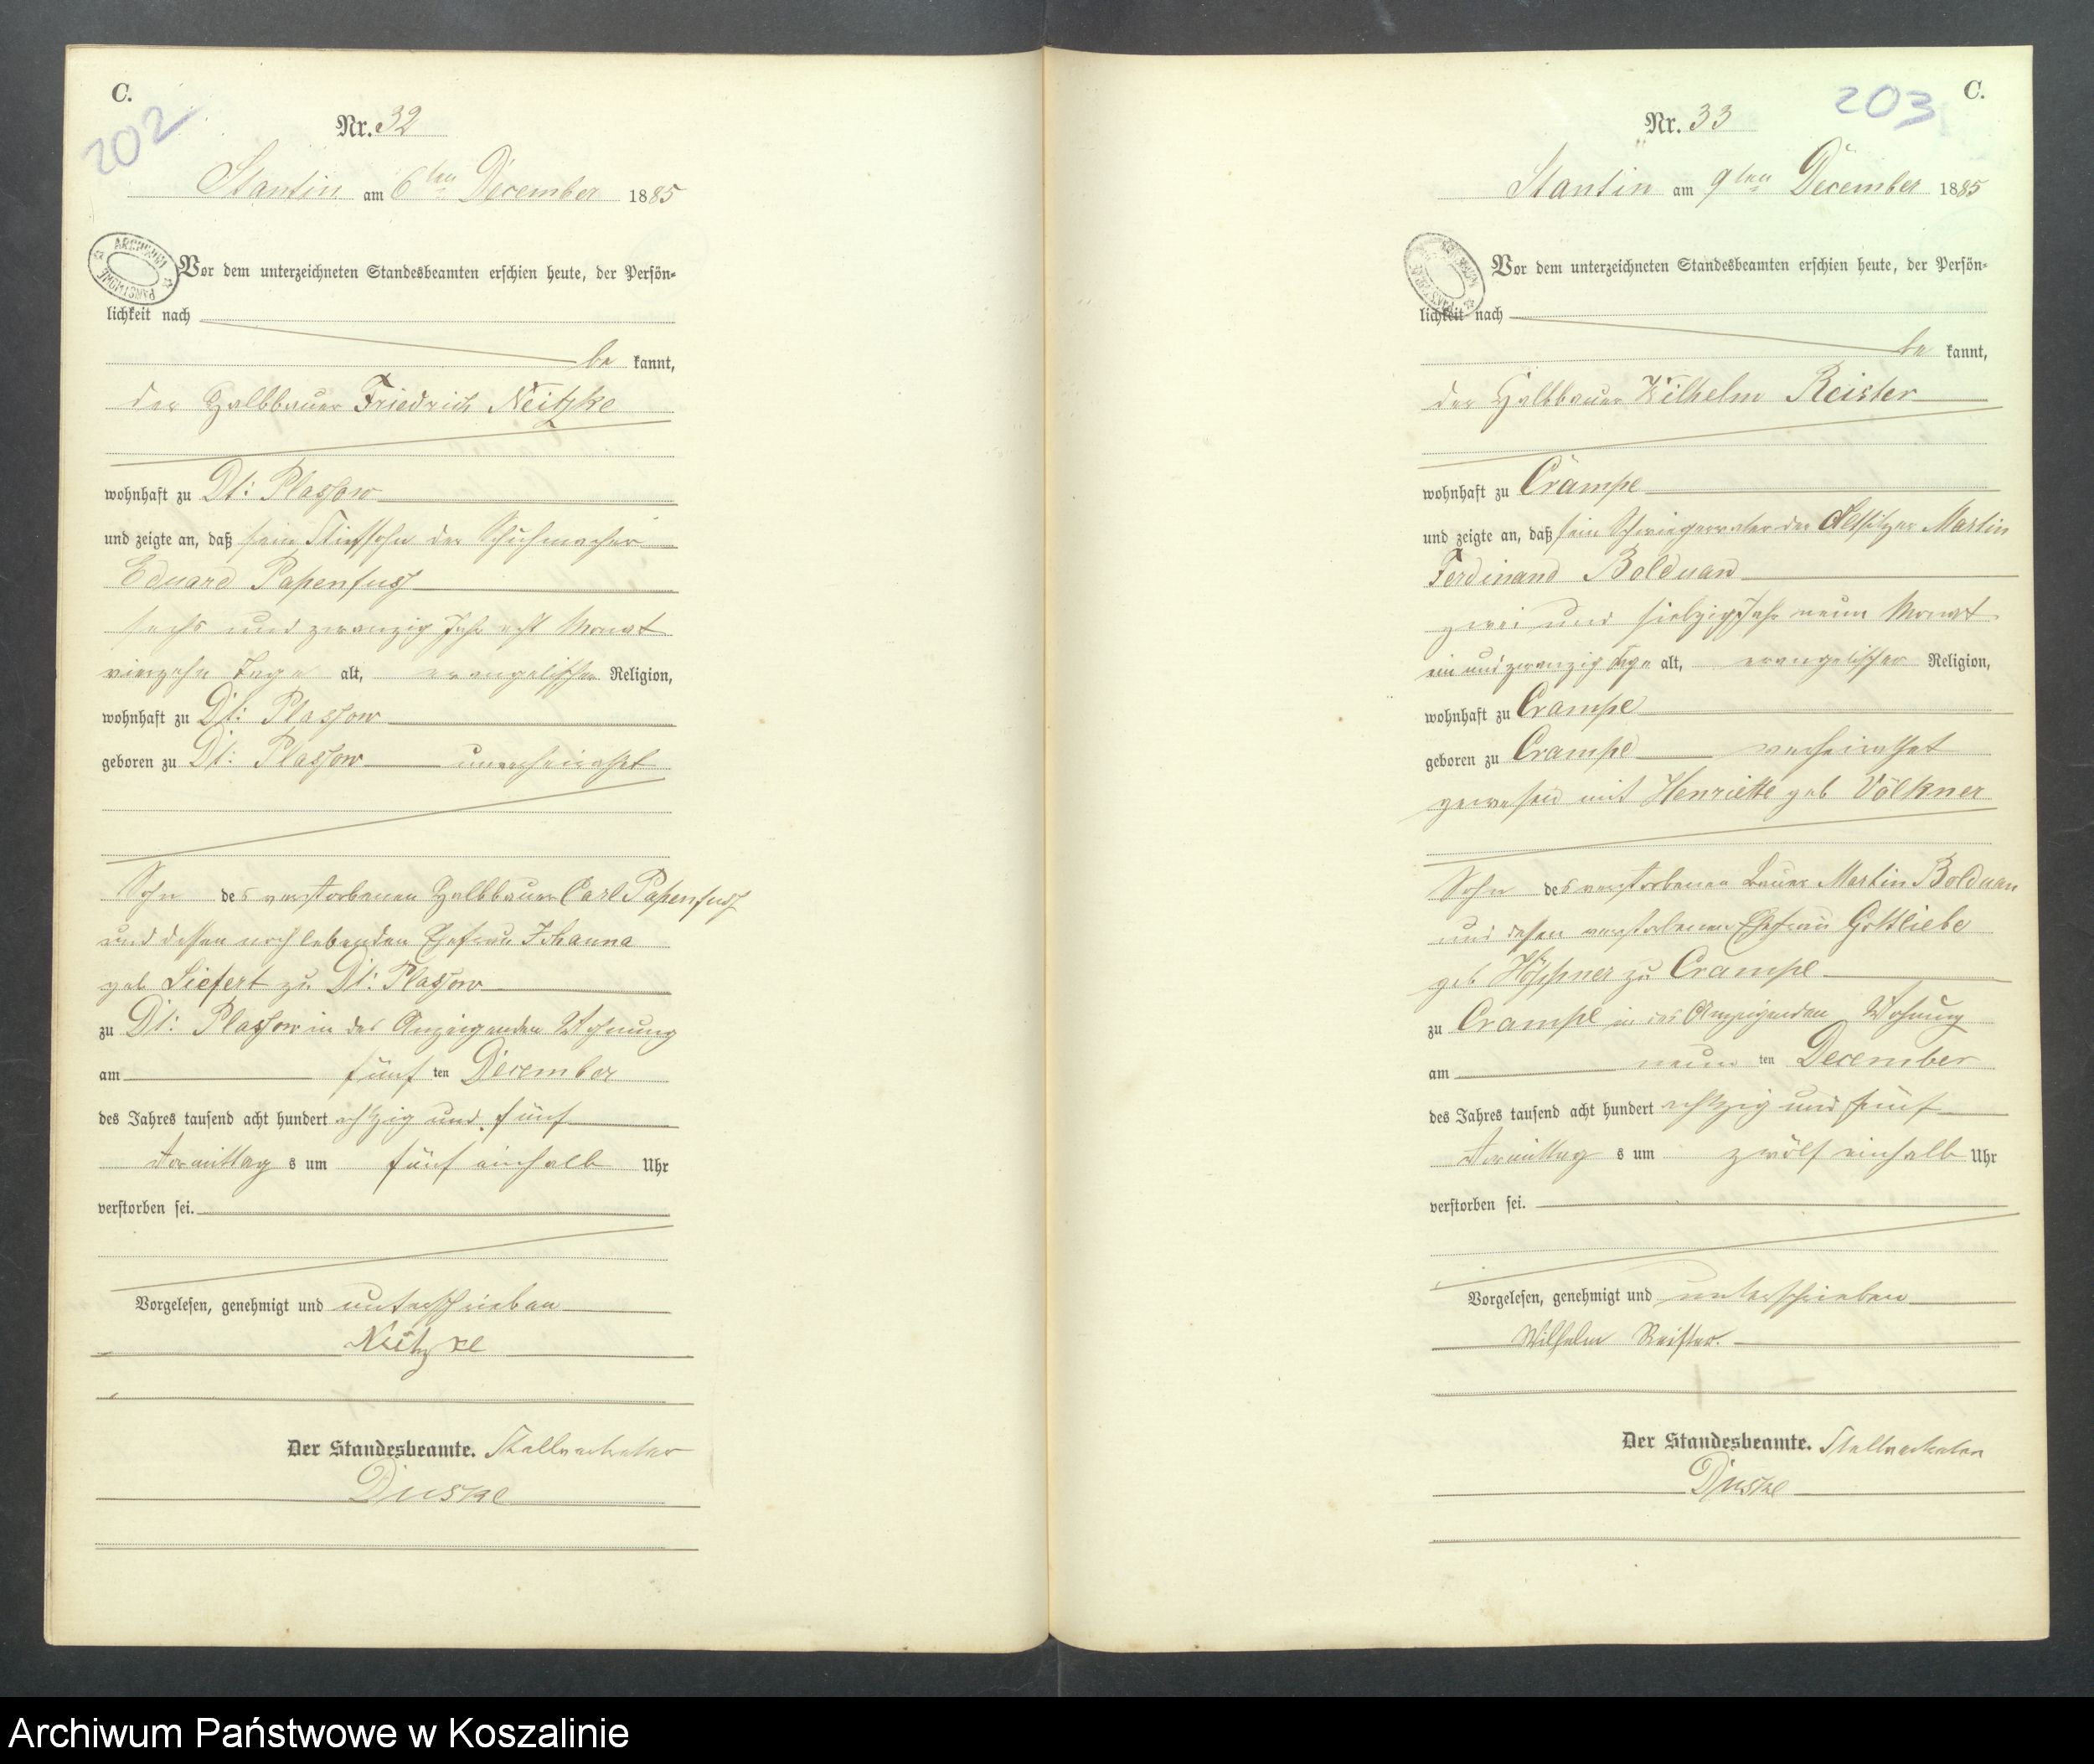 C.
202
Nr. 32
Stantin am 6ten December 1885
ARCHIWUM PAŃSTWOWE
Vor dem unterzeichneten Standesbeamten erschien heute, der Persön-
lichkeit nach
be kannt,
der Halbbauer Friedrich Neitzke
wohnhaft zu Dt: Plassow
und zeigte an, daß sein Stiefsohn der Schuhmacher
Eduard Papenfuss
sechs und zwanzig Jahr acht Monat
vierzehn Tage alt, evangelischer Religion,
wohnhaft zu Dt: Plassow
geboren zu Dt: Plassow unverheirathet
Sohn des verstorbenen Halbbauer Carl Papenfuss
und dessen noch lebenden Ehefrau Johanna
geb Siefert zu Dt: Plassow
zu Dt: Plassow in des Anzeigenden Wohnung
am fünf ten December
des Jahres tausend acht hundert achtzig und fünf
Vormittag s um fünf einhalb Uhr
verstorben sei.
Vorgelesen, genehmigt und unterschrieben
Neitzke
Der Standesbeamte. Stellvertreter
Duske
C.
203
Nr. 33
Stantin am 9ten December 1885
Vor dem unterzeichneten Standesbeamten erschien heute, der Persön-
lichkeit nach
be kannt,
der Halbbauer Wilhelm Reister
wohnhaft zu Crampe
und zeigte an, daß sein Schwiegervater der Altsitzer Martin
Ferdinand Bolduan
zwei und siebzig Jahr neun Monat
ein und zwanzig Tage alt, evangelischer Religion,
wohnhaft zu Crampe
geboren zu Crampe verheirathet
gewesen mit Henriette geb Völkner
Sohn des verstorbenen Bauer Martin Bolduan
und dessen verstorbenen Ehefrau Gottliebe
geb Höppner zu Crampe
zu Crampe in des Anzeigenden Wohnung
am neun ten December
des Jahres tausend acht hundert achtzig und fünf
Vormittag s um zwölf einhalb Uhr
verstorben sei.
Vorgelesen, genehmigt und unterschrieben
Wilhelm Reister.
Der Standesbeamte. Stellvertreter
Duske
Archiwum Państwowe w Koszalinie